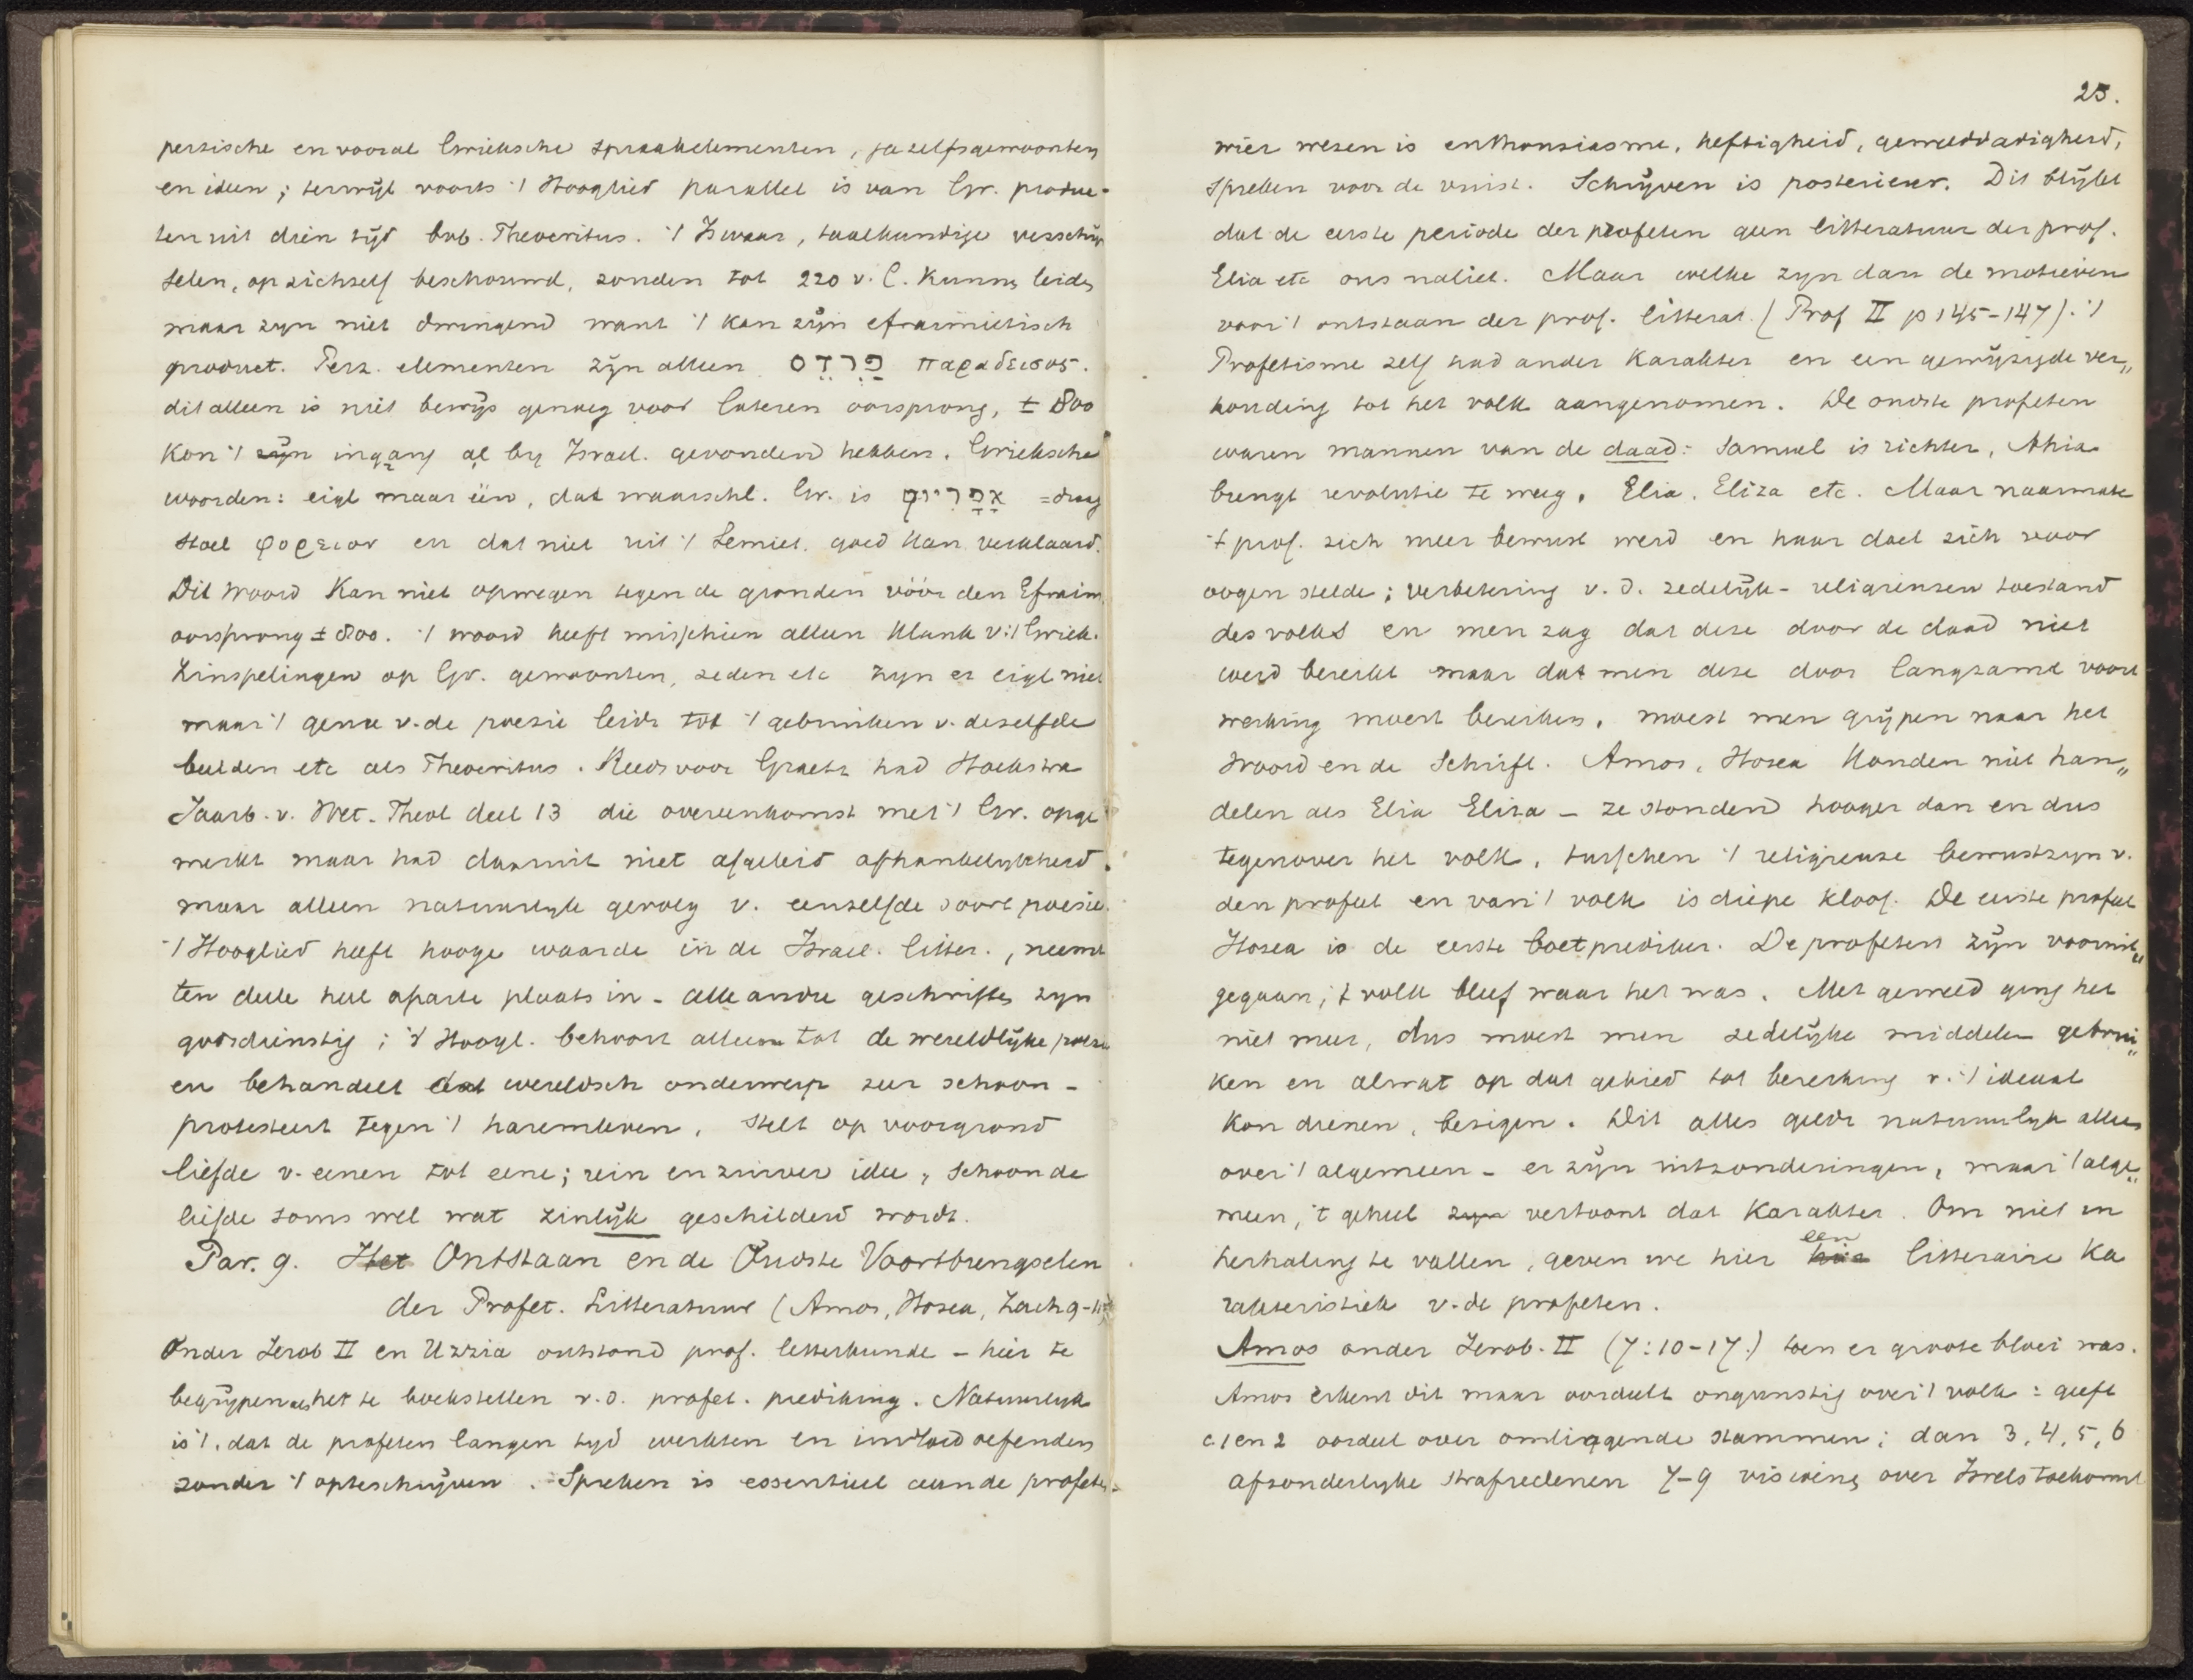 perzische en vooral Grieksche spraakelementen, ja zelfs gewoonten
en ideen; terwijl voorts 't Hooglied parallel is van Gr. produc-
ten uit dien tijd bvb. Theocritus. 't Is waar, taalkundige verschijn
selen, op zichzelf beschouwd, zouden tot 220 v. C. kunnen leiden
maar zyn niet dwingend want 't kan zijn efraimietisch
product. Perz. elementen zijn alleen פרדס παραδεισος.
dit alleen is niet bewijs genoeg voor lateren oorsprong, ± 800
kon 't zijn ingang al by Israel. gevonden hebben. Grieksche
woorden: eigl maar één, dat waarschl. Gr. is אפריון = draag
stoel φορειον en dat niet uit 't Semiet. goed kan verklaard.
Dit woord kan niet opwegen tegen de gronden vóór den Efraim
oorsprong ± 800. 't woord heeft misschien alleen klank v. 't Griek.
Zinspelingen op Gr. gewoonten, zeden etc zyn er eigl niet
maar 't genre v. de poesie leidt tot 't gebruiken v. dezelfde
beelden etc als Theocritus. Reeds voor Graetz had Hoekstra
Jaarb. v. Wet. Theol deel 13 die overeenkomst met 't Gr. opge
merkt maar had daaruit niet afgeleid afhankelykheid.
maar alleen natuurlyk gevolg v. eenzelfde soort poesie.
't Hooglied heeft hooge waarde in de Israel. litter., neemt
ten deele heel aparte plaats in - alle andre geschriften zyn
godsdienstig; 't Hoogl. behoort alleen tot de wereldlijke poesie
en behandelt dat wereldsch onderwerp zeer schoon -
protesteert tegen 't haremleven, stelt op voorgrond
liefde v. eenen tot eene; rein en zuiver idee, schoon de
liefde soms wel wat zinlijk geschilderd wordt.
Par. 9. Het Ontstaan en de Oudste Voortbrengselen
der Profet. Litteratuur (Amos, Hosea, Zach 9-11)
Onder Jerob II en Uzzia ontstond prof. letterkunde - hier te
begrijpen als het te boekstellen v. d. profet. prediking. Natuurlyk
is 't, dat de profeten langen tyd werkten en invloed oefenden
zonder 't opteschrijven. Spreken is essentieel aan de profeten
25.
wier wezen is enthousiasme, heftigheid, gewelddadigheid,
spreken voor de vuist. Schrijven is posterieur. Dit blijkt
dat de eerste periode der profeten geen litteratuur der prof.
Elia etc ons naliet. Maar welke zyn dan de motieven
voor 't ontstaan der prof. litterat. (Prof II p 145-147). 't
Profetisme zelf had ander karakter en een gewijzigde ver„
houding tot het volk aangenomen. De oudste profeten
waren mannen van de daad: Samuel is richter, Ahia
brengt revolutie te weeg, Elia, Eliza etc. Maar naarmate
't prof. zich meer bewust werd en haar doel zich voor
oogen stelde; verbetering v. d. zedelijk-religieuzen toestand
des volks en men zag dat deze door de daad niet
werd bereikt maar dat men deze door langzame voort
werking moest bereiken, moest men grijpen naar het
woord en de Schrift. Amos, Hosea konden niet han„
delen als Elia Eliza - ze stonden hooger dan en dus
tegenover het volk, tusschen 't religieuze bewustzyn v.
den profeet en van 't volk is diepe kloof. De eerste profeet
Hosea is de eerste boetprediker. De profeten zijn vooruit„
gegaan; 't volk bleef waar het was. Met geweld ging het
niet meer, dus moest men zedelijke middelen gebrui„
ken en alwat op dat gebied tot bereiking v. 't ideaal
kon dienen, bezigen. Dit alles geldt natuurlyk alleen
over 't algemeen - er zijn uitzonderingen, maar 't alge„
meen, 't geheel zyn vertoont dat karakter. Om niet in
herhaling te vallen, geven we hier een litteraire ka
rakteristiek v. de profeten.
Amos onder Jerob. II (7:10-17.) toen er groote bloei was.
Amos erkent dit maar oordeelt ongunstig over 't volk: geeft
c. 1 en 2 oordeel over omliggende stammen; dan 3, 4, 5, 6
afzonderlyke strafredenen 7-9 visioenen over Isrels toekomst